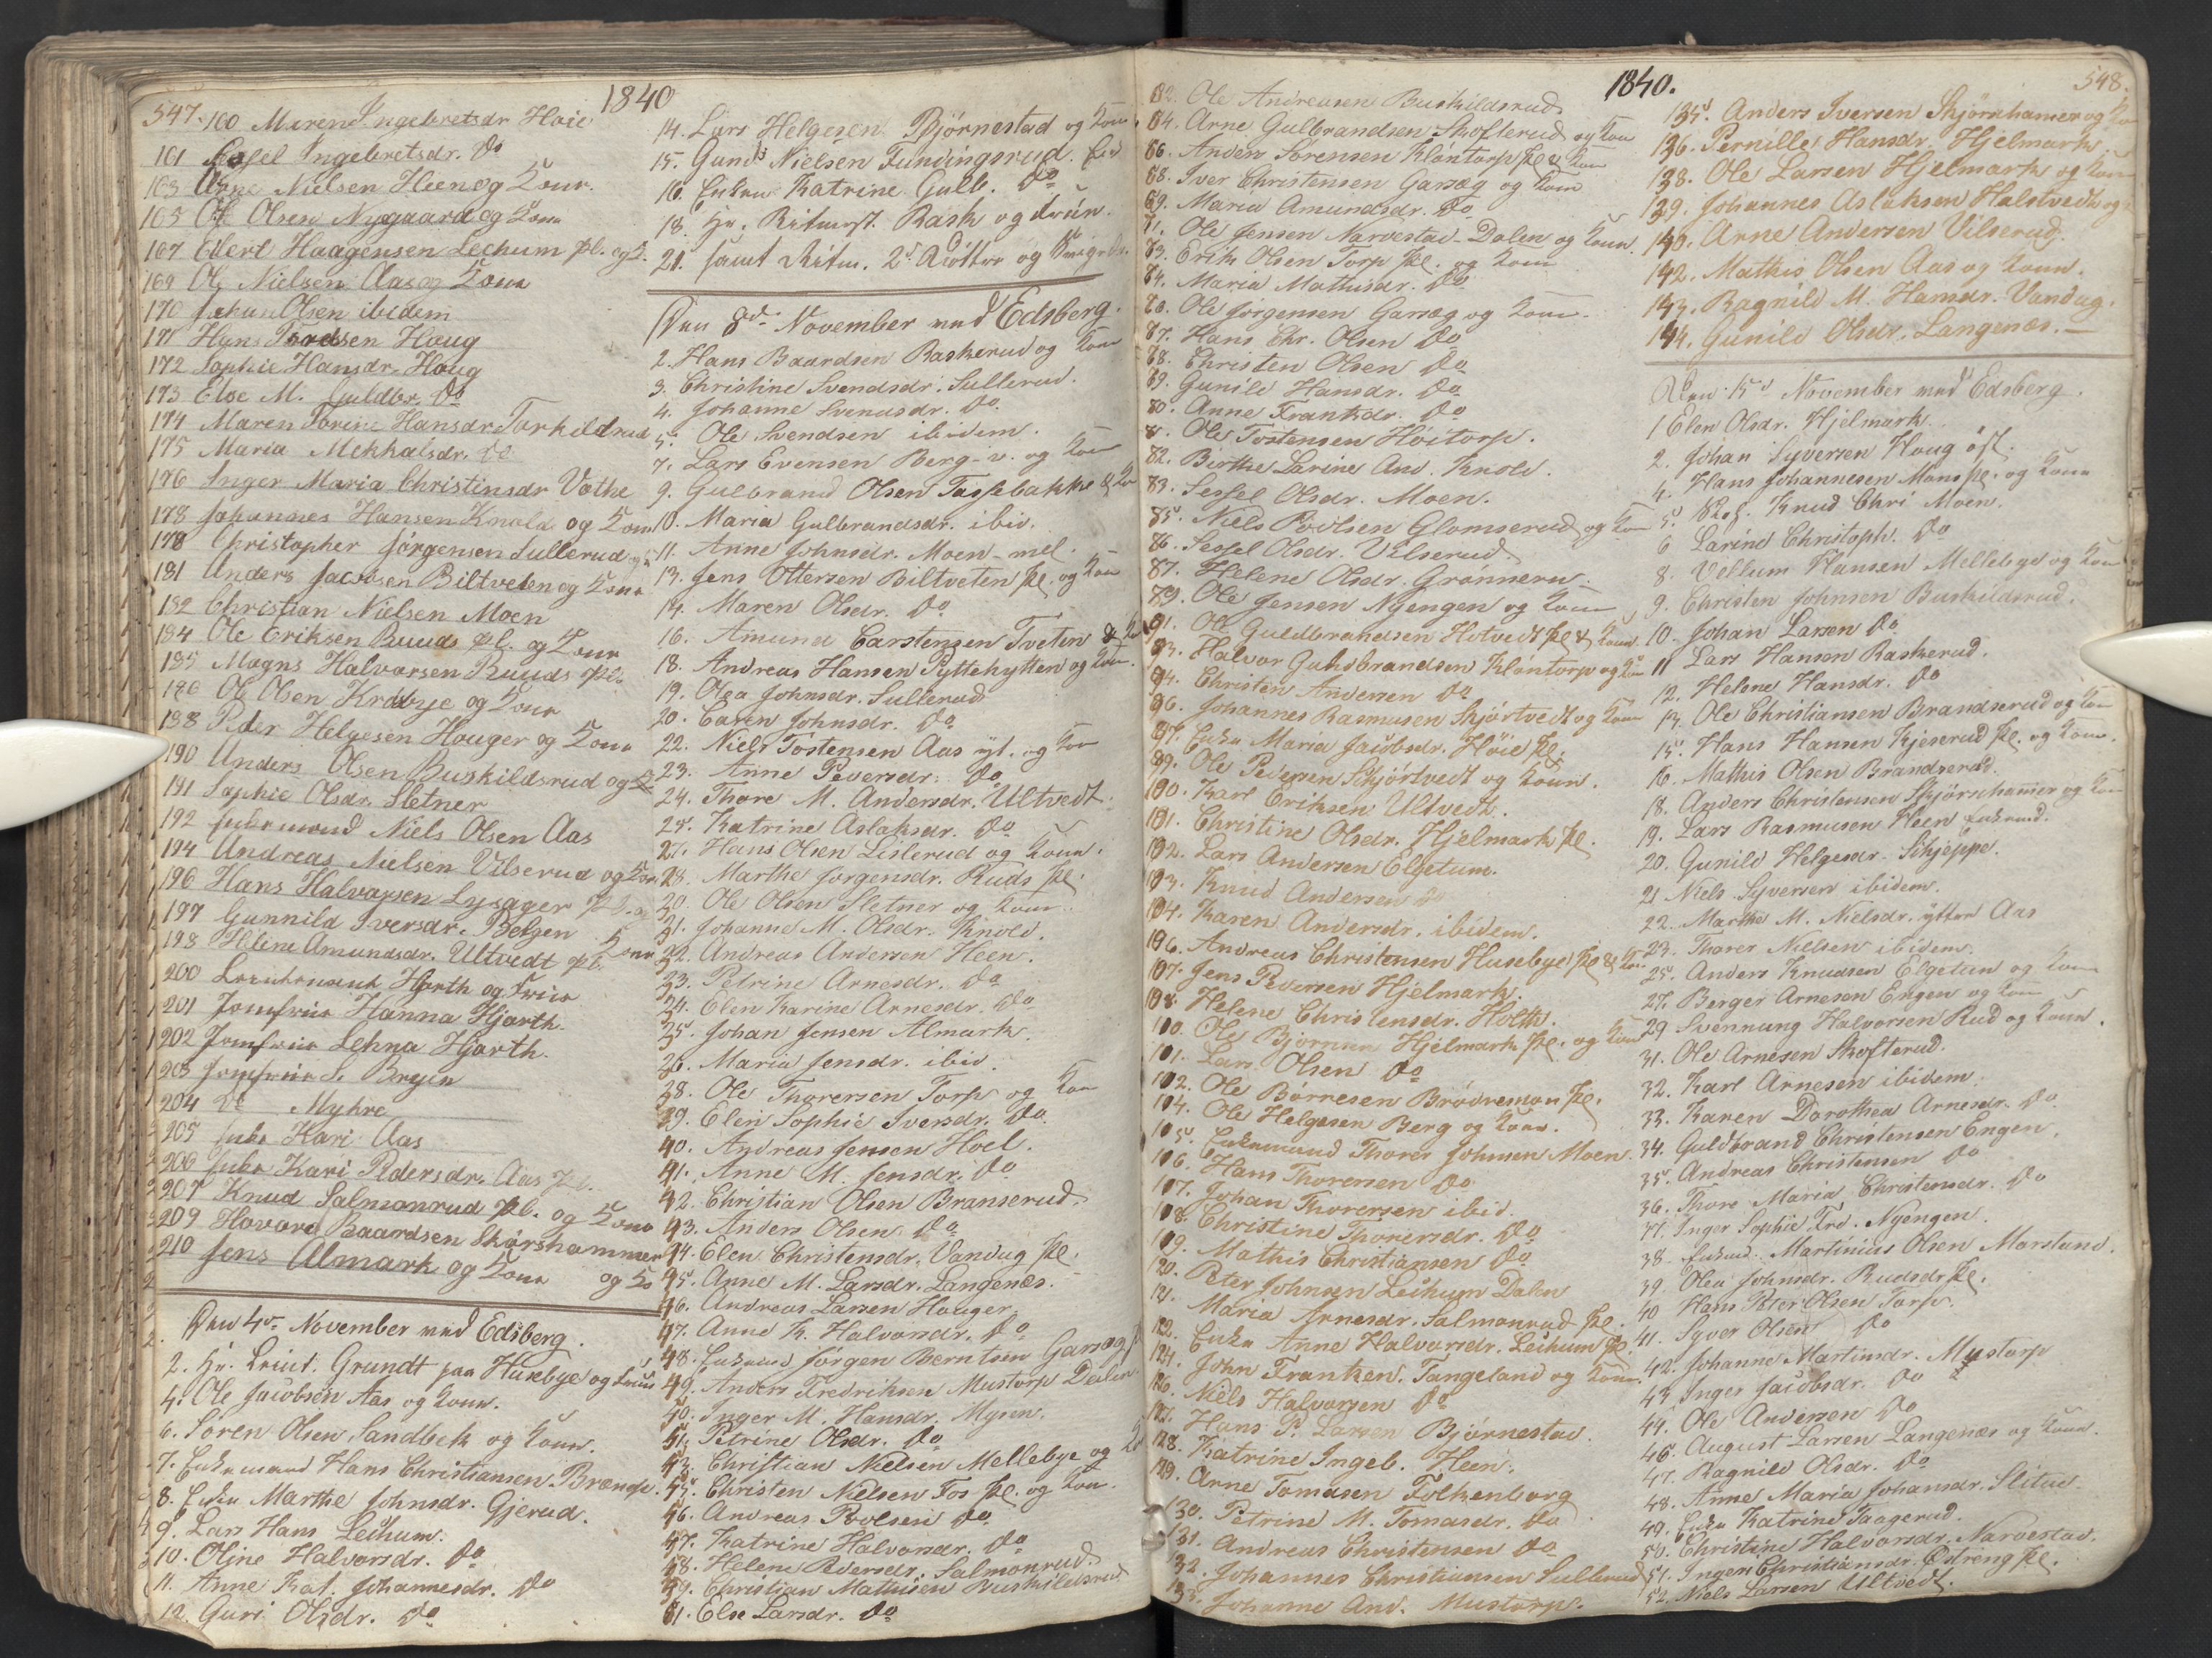 547.
1840
100 Maren Ingebretsdr Høie
101 Sessel Ingebretsdr. Do
103 Arne Nielsen Heen og Kone.
105 Ole Olsen Nygaard og Kone
107 Evert Haagensen Leckum Pl. og K.
169 Ole Nielsen Aas og Kone
170 Johan Olsen ibidem
171 Hans Tordssen Houg
172 Sophie Hansdr. Houg
173 Else M. Guldbr. Do
174 Maren Torine Hansdr Torkildrud
175 Maria Mekkalsdr. Do
176 Inger Maria Christinsdr Vathe
178 Johannes Hansen Knold og Kone
178 Christopher Jørgensen Sullerud
181 Anders Jacobsen Biltveten og Kone
182 Christian Nielsen Moen
184 Ole Eriksen Ruuds pl. og Kone
185 Magns Halvorsen Ruuds Pl.
186 Ole Olsen Krabye og Kone
188 Peder Helgesen Houger og Kone
190 Anders Olsen Buskildsrud og K
191 Sophie Olsdr. Sletner
192 Enkemand Niels Olsen Aas
194 Andreas Nielsen Vilserud og Kone
196 Hans Halvorsen Lysager Pl. og
197 Gunnild Iversdr. Betzen Kone
198 Helene Amundsdr. Ultvedt pl.
200 Leutenant Hjorth og Frue
201 Jomfrue Hanna Hjorth.
202 Jomfrue Lehna Hjorth.
203 Jomfrue S. Breyen
204 Do Myhre
205 Enke Kari Aas
206 Enke Kari Pedersdr. Aas Pl.
207 Knud Salmonrud pl. og Kone
209 Havord Baardsen Skørshammer
210 Jens Almark og Kone og Ko
Den 4de November ved Edsberg.
2. Hr. Leiut. Grundt paa Husebye og Frue
4. Ole Jacobsen Aas og Kone.
6. Søren Olsen Sandbek og Kone.
7. Enkemand Hans Christiansen Brænge.
8. Enke Marthe Johnsdr. Gjerud.
9. Lars Hans Leikum.
10. Oline Halvorsdr. Do
11. Anne Kat. Johannesdr. Do
12. Guri Olsdr. Do
14. Lars Helgesen Bjørnestad og Kone
15. Gund. Nielsen Fundingsrud.
16. Enken Katrine Gulb. Do
18. Hr. Ritmest. Rask og Frue.
21. samt Ritm. 2de Døttre og
Den 8de November ved Edsberg.
2. Hans Baardsen Raskerud og Kone
3. Christine Svendsdr. Sullerud.
4. Johanne Svendsdr. Do.
5. Ole Svendsen ibidem.
7. Lars Evensen Berg-v. og Kone
9. Gulbrand Olsen Tassebakke & Ko
10. Maria Gulbrandsdr. ibid.
11. Anne Johnsdr. Moen-mel.
13. Jens Ottersen Biltveten Pl. og Kone
14. Maren Olsdr. Do
16. Amund Carstensen Tveten & Ko
18. Andreas Hansen Pyttehytten og Kone.
19. Olea Johnsdr. Sullerud
20. Caren Johnsdr. Do
22. Niels Tostensen Aas yt. og Kone
23. Anne Pedersdr. Do
24. Thore M. Andersdr. Ultvedt.
25. Katrine Aslaksdr. Do
27. Hans Olsen Lislerud og Kone.
28. Marthe Jørgensdr. Ruds Pl.
30. Ole Olsen Sletner og Kone.
31. Johanne M. Olsdr. Knold.
32. Andreas Andersen Heen.
33. Petrine Arnesdr. Do
34. Elen Karine Arnesdr. Do
35. Johan Jensen Almark.
36. Maria Jensdr. ibid.
38. Ole Thorersen Torp og Kone
39. Elen Sophie Iversdr. Do
40. Andreas Jensen Hoel.
41. Anne M. Jensdr. Do
42. Christian Olsen Branserud.
43. Anders Olsen Do
44. Elen Christensdr. Vandug Pl.
45. Anne M. Larsdr. Langenæs.
46. Andreas Larsen Houger.
47. Anne K. Halvorsdr. Do
48. Enkemand Jørgen Berntsen Garseg
49. Anders Fredriksen Mustorp Deilen
50. Inger M. Hansdr. Mysen.
51. Petrine Olsdr. Do
53. Christian Nielsen Mellebye og Ko
55. Christen Nielsen Fos Pl. og Kone.
56. Andreas Povlsen Do
57. Katrine Halvorsdr. Do
58. Helene Pedersdr. Salmonrud.
59. Christian Mathisen Buskildsrud
61. Else Larsdr. Do
1840.
548.
62. Ole Andreasen Buskildsrud
64. Arne Gulbrandsen Skofterud og Kone
66. Anders Sørensen Kløntorp Pl. & Kone
68. Iver Christensen Garseg og Kone
69. Maria Amundsdr. Do
71. Ole Jensen Narvestad-Dalen og Kone.
73. Erik Olsen Torp Pl. og Kone
74. Maria Mathisdr. Do
76. Ole Jørgensen Garseg og Kone.
77. Hans Chr. Olsen Do
78. Christen Olsen Do
79. Gunild Hansdr. Do
80. Anne Franksdr. Do
81. Ole Tostensen Høitorp.
82. Birthe Larine And. Knold.
83. Sessel Olsdr. Moen.
85. Niels Povlsen Glomserud og Kone
86. Sessel Olsdr. Vilserud
87. Helene Olsdr. Grønnern.
89. Ole Jensen Nyengen og Kone
91. Ole Guldbrandsen Hotvedt Pl & Kone.
93. Halvor Guldbrandsen Kløntorp og Kone
94. Christen Andersen Do
96. Johannes Rasmusen Skjørtvedt og Kone
97. Enke Maria Jacobsdr. Høie Pl.
99. Ole Pedersen Skjørtvedt og Kone.
100. Karl Eriksen Ultvedt.
101. Christine Olsdr. Hjelmark Pl.
102. Lars Andersen Elgetum.
103. Knud Andersen Do
104. Karen Andersdr. ibidem.
106. Andreas Christensen Husebye Pl & Kone.
107. Jens Pedersen Hjelmark.
108. Helene Christensdr. Holth.
110. Ole Bjørnsen Hjelmark Pl. og Kone
111. Lars Olsen Do
112. Ole Børresen Brødremoen Pl.
114. Ole Helgesen Berg og Kone.
115. Enkemand Thorer Johnsen Moen.
116. Hans Thorersen Do
117. Johan Thorersen ibid.
118. Christine Thorersdr. Do
119. Mathis Christiansen Do
120. Peter Johnsen Leikum Dalen
121. Maria Arnesdr. Salmonrud Pl.
122. Enke Anne Halvorsdr. Leikum Pl.
124. John Franken. Tangeland og Kone.
126. Niels Halvorsen Do
127. Hans P. Larsen Bjørnestad.
128. Katrine Ingeb. Heen.
129. Arne Tomasen Folkenborg
130. Petrine M. Tomasdr. Do
131. Andreas Christensen Do
132. Johannes Christiansen Sullerud
133. Johanne And. Mustorp.
135. Anders Iversen Skjørshamer og Ko
136. Pernille Hansdr. Hjelmark.
138. Ole Larsen Hjelmark og Kone
139. Johannes Aslaksen Halstvedt og
140. Arne Andersen Vilserud.
142. Mathis Olsen Aas og Kone.
143. Ragnild M. Hansdr. Vandug.
144. Gunild Olsdr. Langenæs.
Den 15de November ved Edsberg.
1 Elen Olsdr. Hjelmark.
2. Johan Syversen Houg øst.
4. Hans Johannesen Mons Pl. og Kone
5. Knud Chri Moen.
6 Larine Christoph. Do
8. Vellum Hansen Mellebye og Kone
9. Christen Johnsen Buskildsrud.
10. Johan Larsen Do
11 Lars Hansen Raskerud.
12. Helene Hansdr. Do
13. Ole Christiansen Brandserud og Kone
15. Hans Hansen Kjeserud Pl. og Kone.
16. Mathis Olsen Brandserud.
18. Anders Christensen Skjørshamer og Kone
19. Lars Rasmusen Heen Enkemd.
20. Gunild Helgesdr. Skjeppe.
21 Niels Syversen ibidem.
22. Marthe M. Nielsdr. yttre Aas
23. Thorer Nielsen ibidem.
25. Anders Knudsen Elgetun og Kone
27. Berger Arnesen Engen og Kone
29 Svennung Halvorsen Rud og Kone.
31. Ole Arnesen Skofterud.
32. Karl Arnesen ibidem.
33. Karen Dorothea Arnesdr. Do
34. Guldbrand Christensen Engen.
35. Andreas Christensen Do
36. Thore Maria Christensdr. Do
37. Inger Sophie Frd. Nyengen.
38. Enkemd. Martinius Olsen Marstand.
39. Olea Johnsdr. Ruds Pl.
40 Hans Peter Olsen Torp.
41. Syver Olsen Do
42. Johanne Martinsdr. Mustorp
43 Inger Jacobsdr. Do
44. Ole Andersen Do
46. August Larsen Langenæs og Kone.
47. Ragnild Olsdr. Do
48. Anne Maria Johansdr. Slitud.
49. Enke Katrine Taagerud.
50. Christine Halvorsdr. Narvestad.
51. Ingeri Christiansdr. Østreng Pl.
52. Niels Larsen Ultvedt.